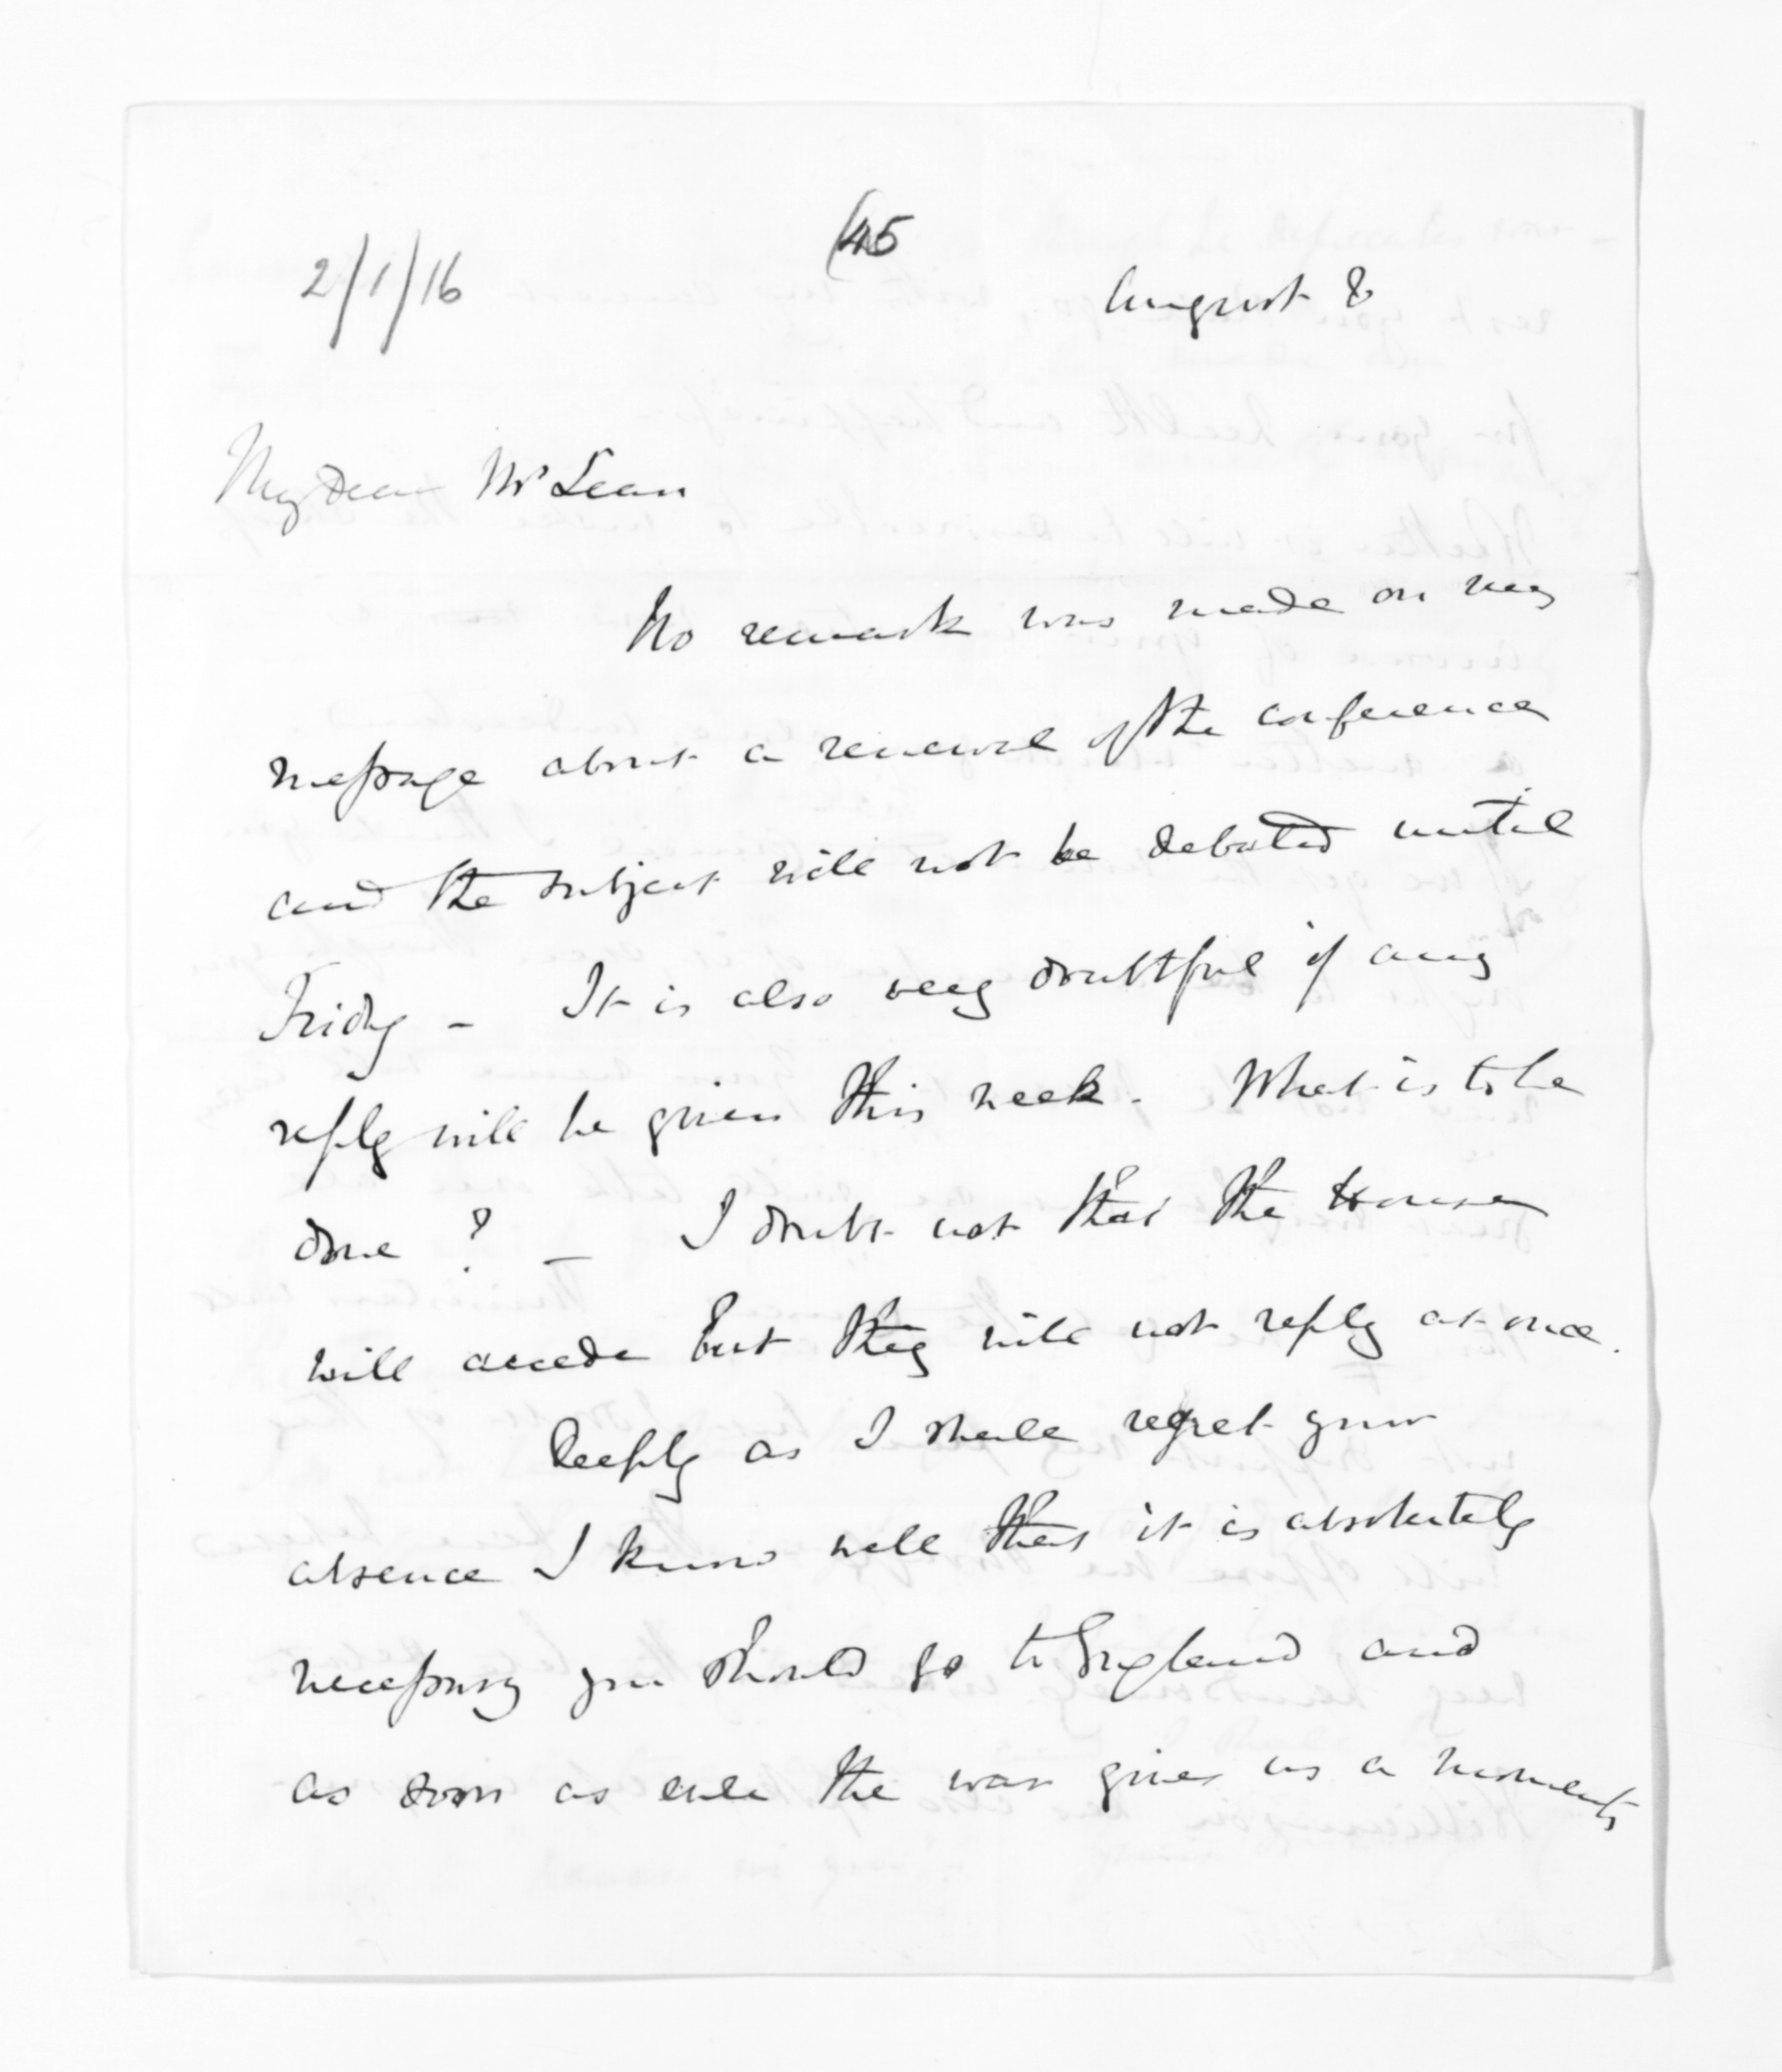 2/1/16
(45
August 8
My Dear McLean
No remark was made on my
message about a renewal of the conference
and the subject will not be debated until
Friday - It is also very doubtful if any
reply will be given this week. What is to be
done ? _ I doubt not that the House
will accede but they will not reply at once.
Deeply as I shall regret your
absence I know well that it is absolutely
necessary you should go to England and
as soon as ever the war gives us a moments